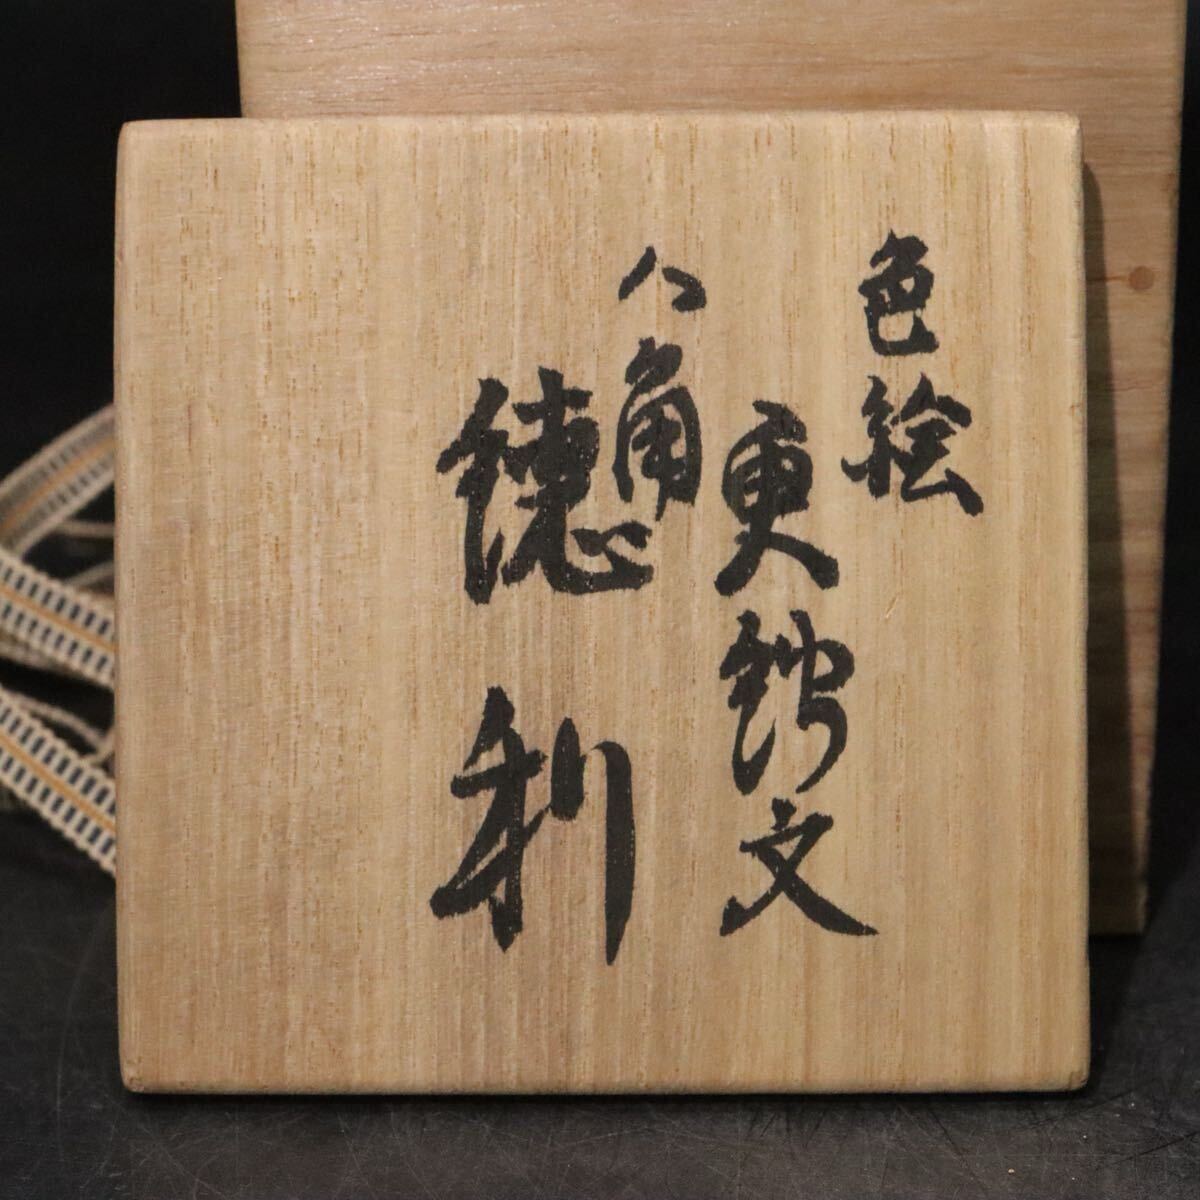 色絵
更紗文
八角
徳利